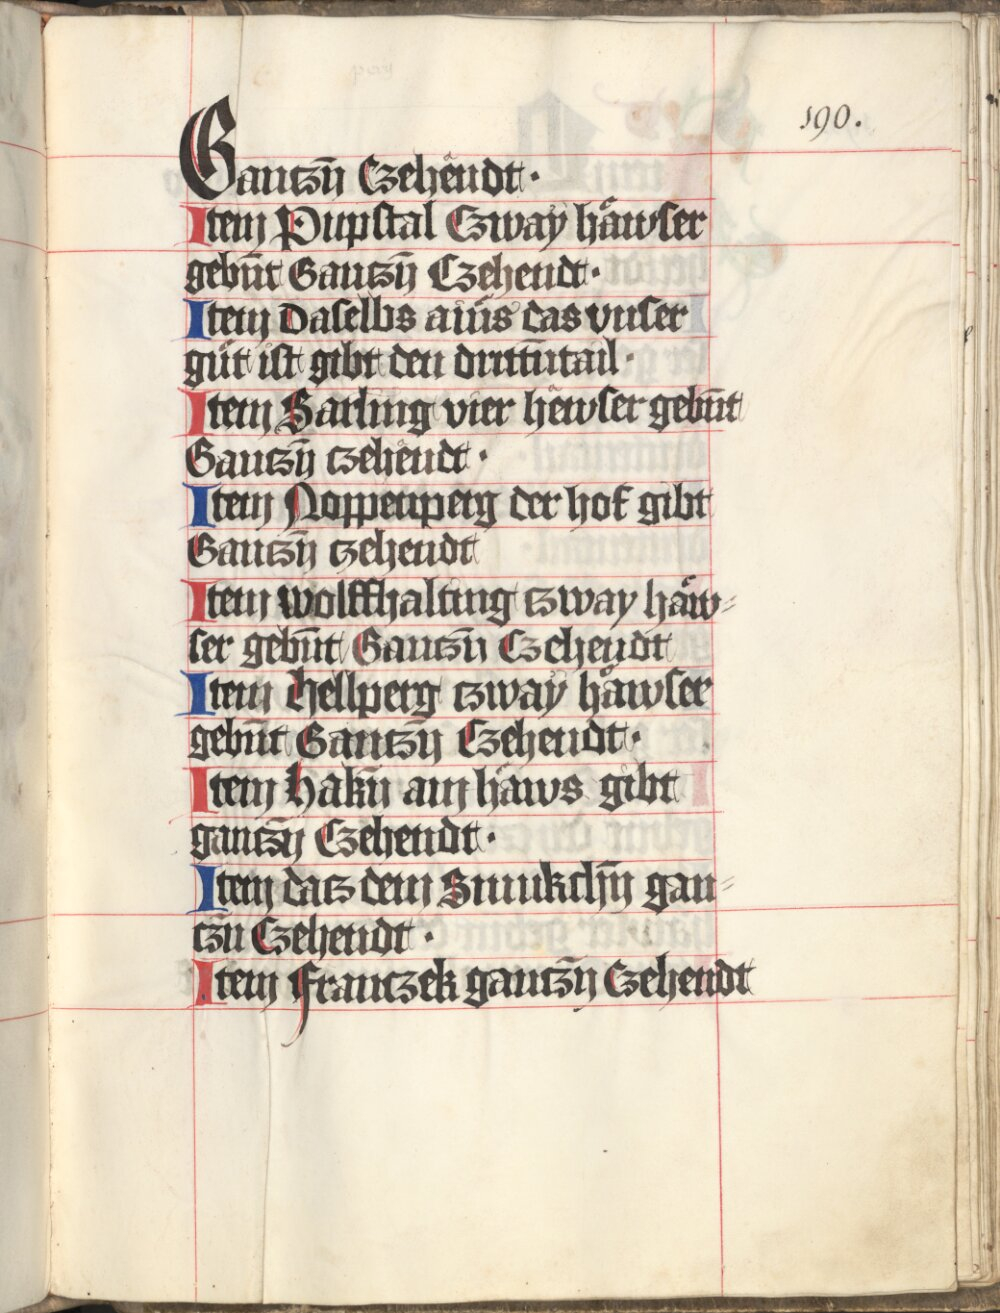 190.
Gantzn̄ Czehendt·
Item Pupstal Czway häwser
gebn̄t Gantzn̄ Czehendt·
Item Daselbs ains das vnser
gůt ist gibt den drittn̄tail·
Item Harling vier hewser gebn̄t
Gantzn̄ tzehendt·
Item Noppenperg der hof gibt
Gantzn̄ tzehendt
Item wolffhalting tzway häw⸗
ser gebn̄t Gantzn̄ Czehendt
Item Hellperg tzway häwser
gebn̄t Gantzn̄ Czehendt·
Item Hakn̄ ain häws gibt
gantzn̄ Czehendt·
Item datz dem Smukchn̄ gan⸗
tzn̄ Czehendt·
Item Franczek gantzn̄ Czehendt